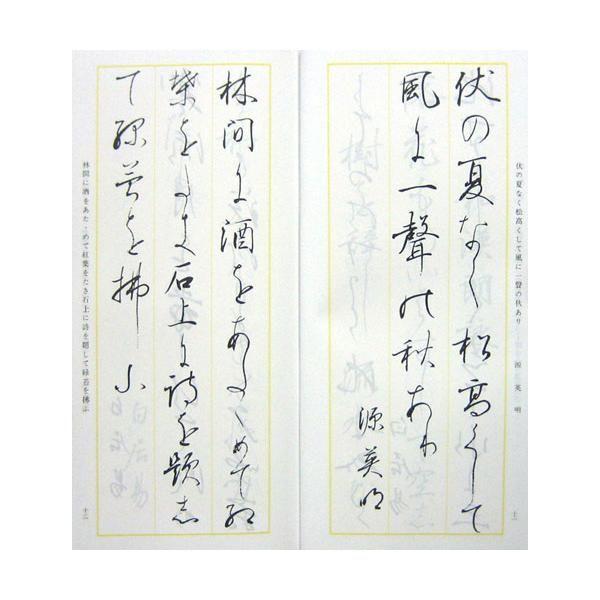 伏の夏なく松高くして風に一聲の秋あり　源英明
十二
伏の夏なく松高くして
風に一聲の秋あり
源英明
林間に酒をあたゝめて紅
葉をたき石上に詩を題し
て緑苔を拂ふ
林間に酒をあたゝめて紅葉をたき石上に詩を題して緑苔を拂ふ
十三